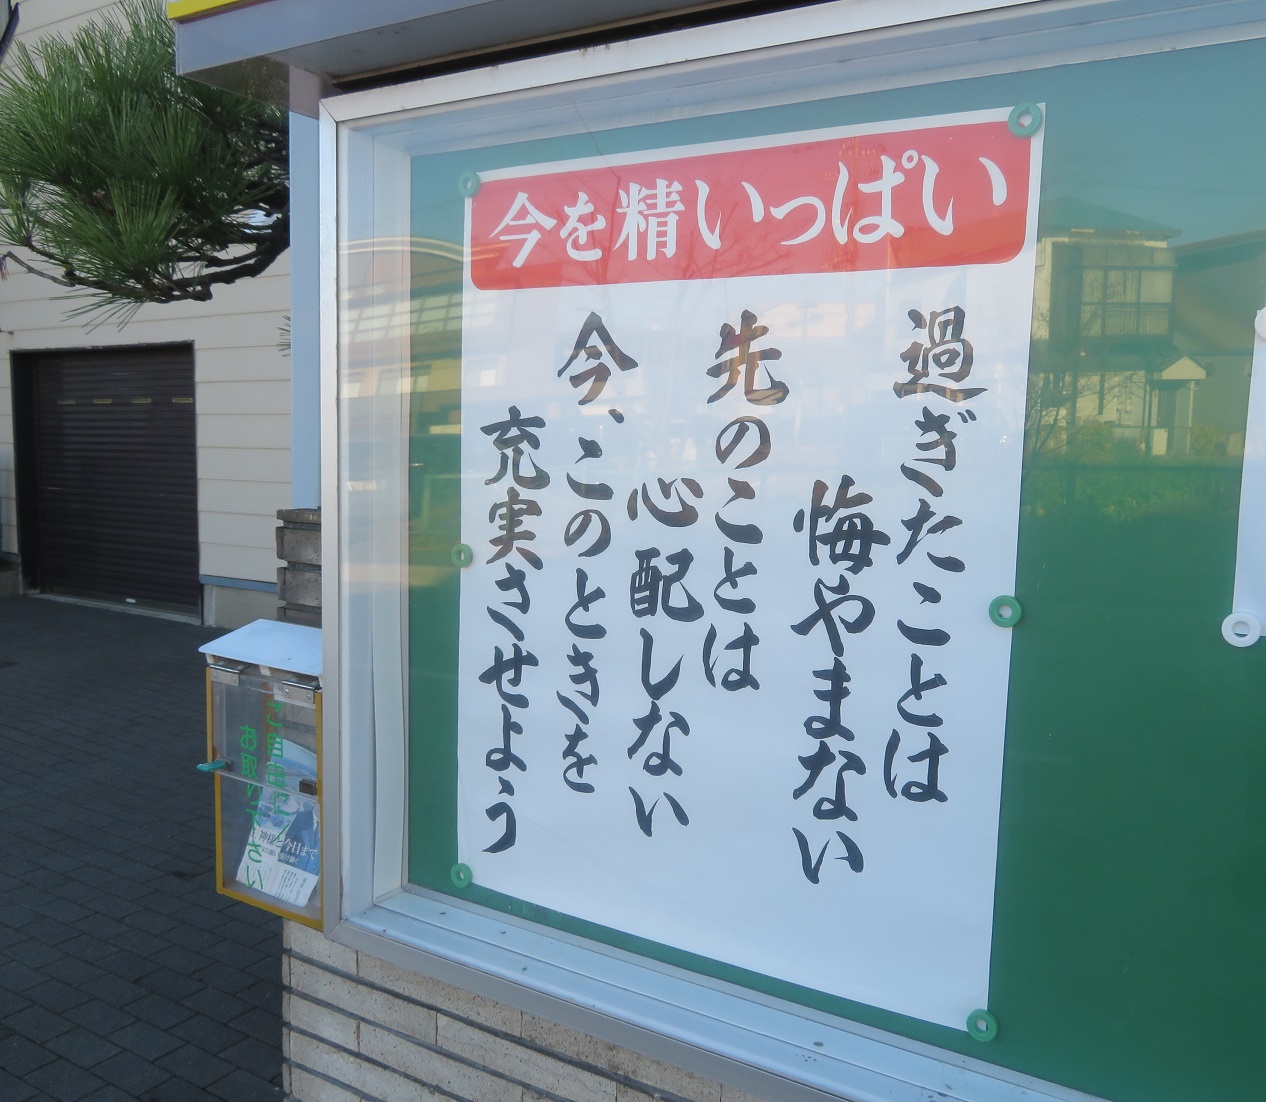 今を精いっぱい
過ぎたことは
悔やまない
先のことは
心配しない
今、このときを
充実させよう
ご自由に
お取り下さい
神様と今日まで